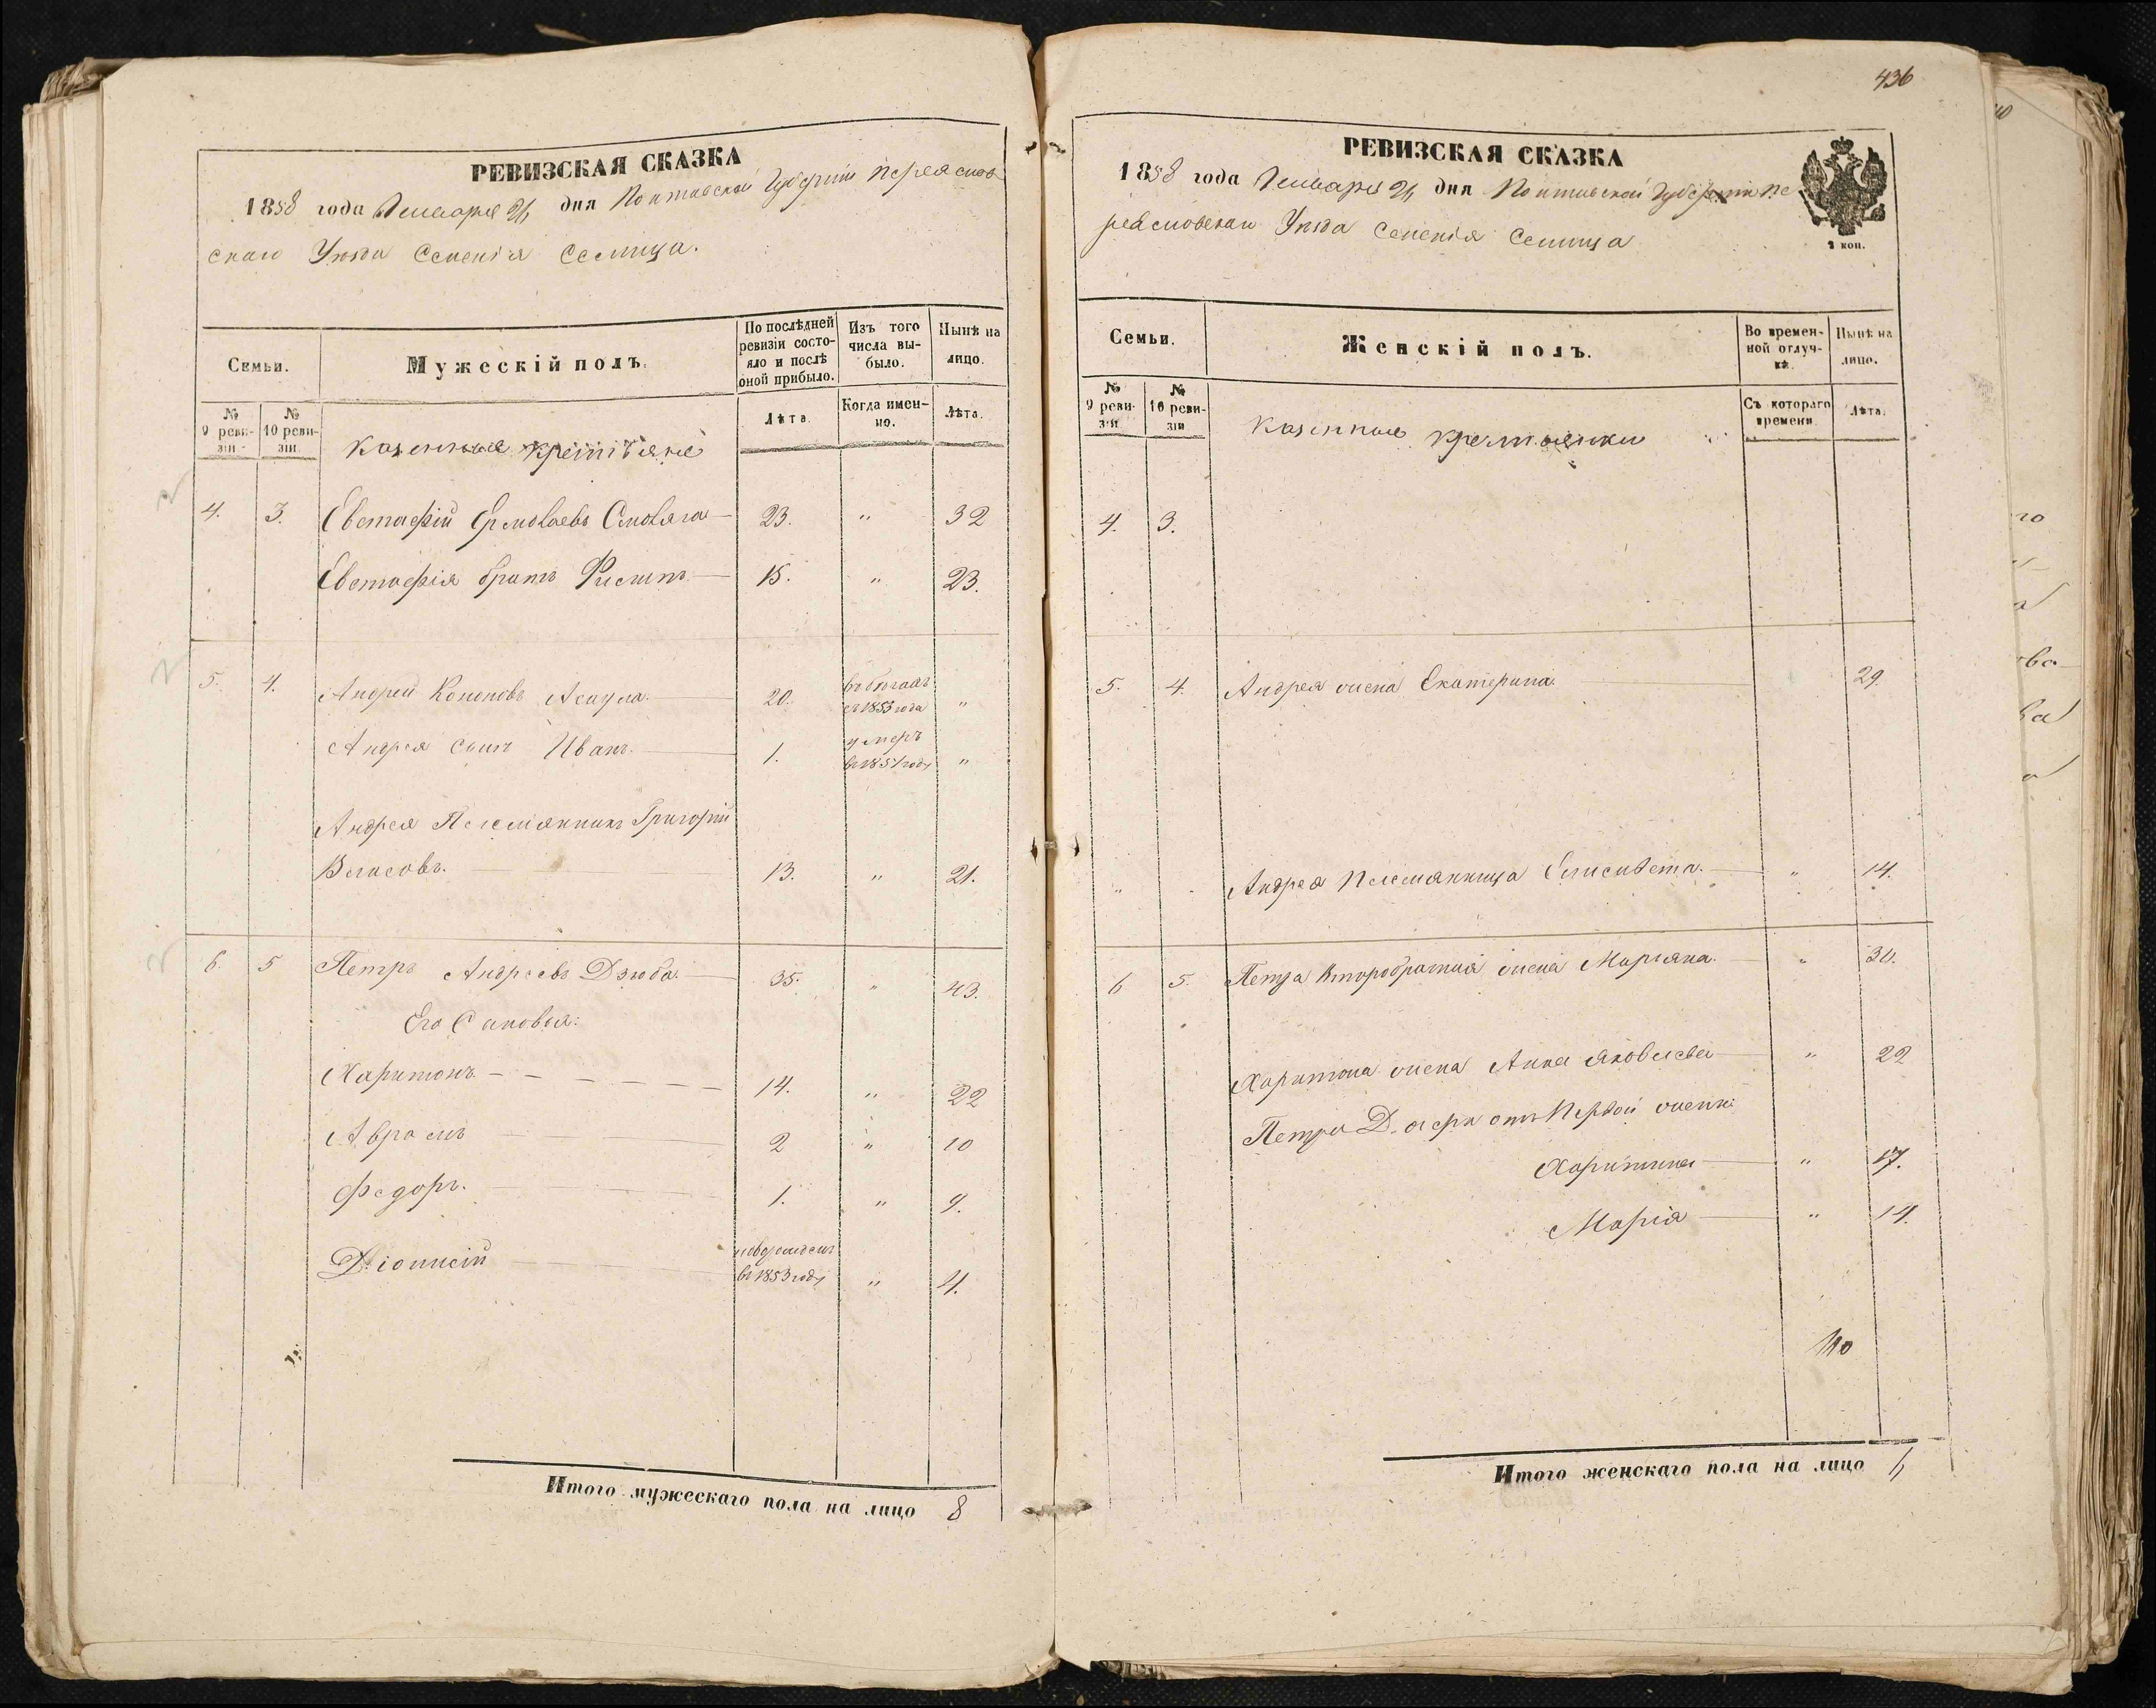 РЕВИЗСКАЯ СКАЗКА
1858 года Генваря 21 дня Полтавской Губерніи Переяслов
скаго Уезда Селенія Селища.
Семьи.
Мужескій полъ.
По послѣдней ревизіи состояло и послѣ оной прибыло.
Изъ того числа выбыло.
Нынѣ на лицо.
№ 9 ревизіи
№ 10 ревизіи.
Лѣта
Когда именно.
Лѣта.
казенные крестьяне
4. 3. Евстафій Ермолаевъ Смоляга 23. " 32
Евстафія братъ Филипъ 15. " 23.
5. 4. Андрей Кононовъ Асаула 20. въ бегахъ съ 1853 года "
Андрея сынъ Иванъ 1. умеръ въ 1851 году "
Андрея Племянникъ Григорій
Власовъ. 13. " 21.
6. 5 Петръ Андреевъ Дзюба 35. " 43.
Его Сыновья:
Харитонъ 14. " 22
Аврамъ 2 " 10
Федоръ. 1. " 9.
Діонисій новорожденъ въ 1853 году " 4.
Итого мужескаго пола на лицо 8
436
РЕВИЗСКАЯ СКАЗКА
1858 года Генваря 21 дня Полтавской Губерніи Пе
реясловскаго Уезда Селенія Селища
2 коп.
Семьи.
Женскій полъ.
Во временной отлучкѣ.
Нынѣ на лицо.
№ 9 ревизіи
№ 10 ревизіи
Съ котораго времени
Лѣта.
казенные крестьянки
4. 3.
5. 4. Андрея жена Екатерина 29
" Андрея Племянница Елисавета. " 14.
6 5. Петра Второбрачная жена Марьяна. " 30.
Харитона жена Анна Яковлева " 22
Петра Дочери отъ Первой жены:
Харитина " 17.
Марія " 14.
Итого женскаго пола на лицо 6